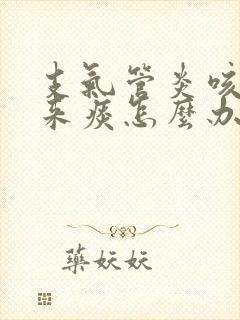 支氣管炎咳
来痰怎麼办
藥妖妖